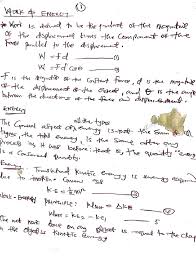 WORK & ENERGY ①
* Work is defined to be the product of the magnitude
of the displacement times the component of the
force parallel to the displacement.
W = Fd
W = Fd cos θ
F is the magnitude of the constant force, d is the magnitude
of the displacement of the object, and θ is the angle
between the directions of the force and displacement.
ENERGY
all the types
The crucial aspect of energy is that the sum of
types, the total energy, is the same after any
process as it was before: that is, the quantity "energy"
is a conserved quantity.
Energy Translational kinetic energy is energy
due to motion
K.E = ½mv²
Work-Energy principle: Wnet = ΔKE
Wnet = KE₂ - KE₁
The net work done on an object is equal to the change
in the object's kinetic energy